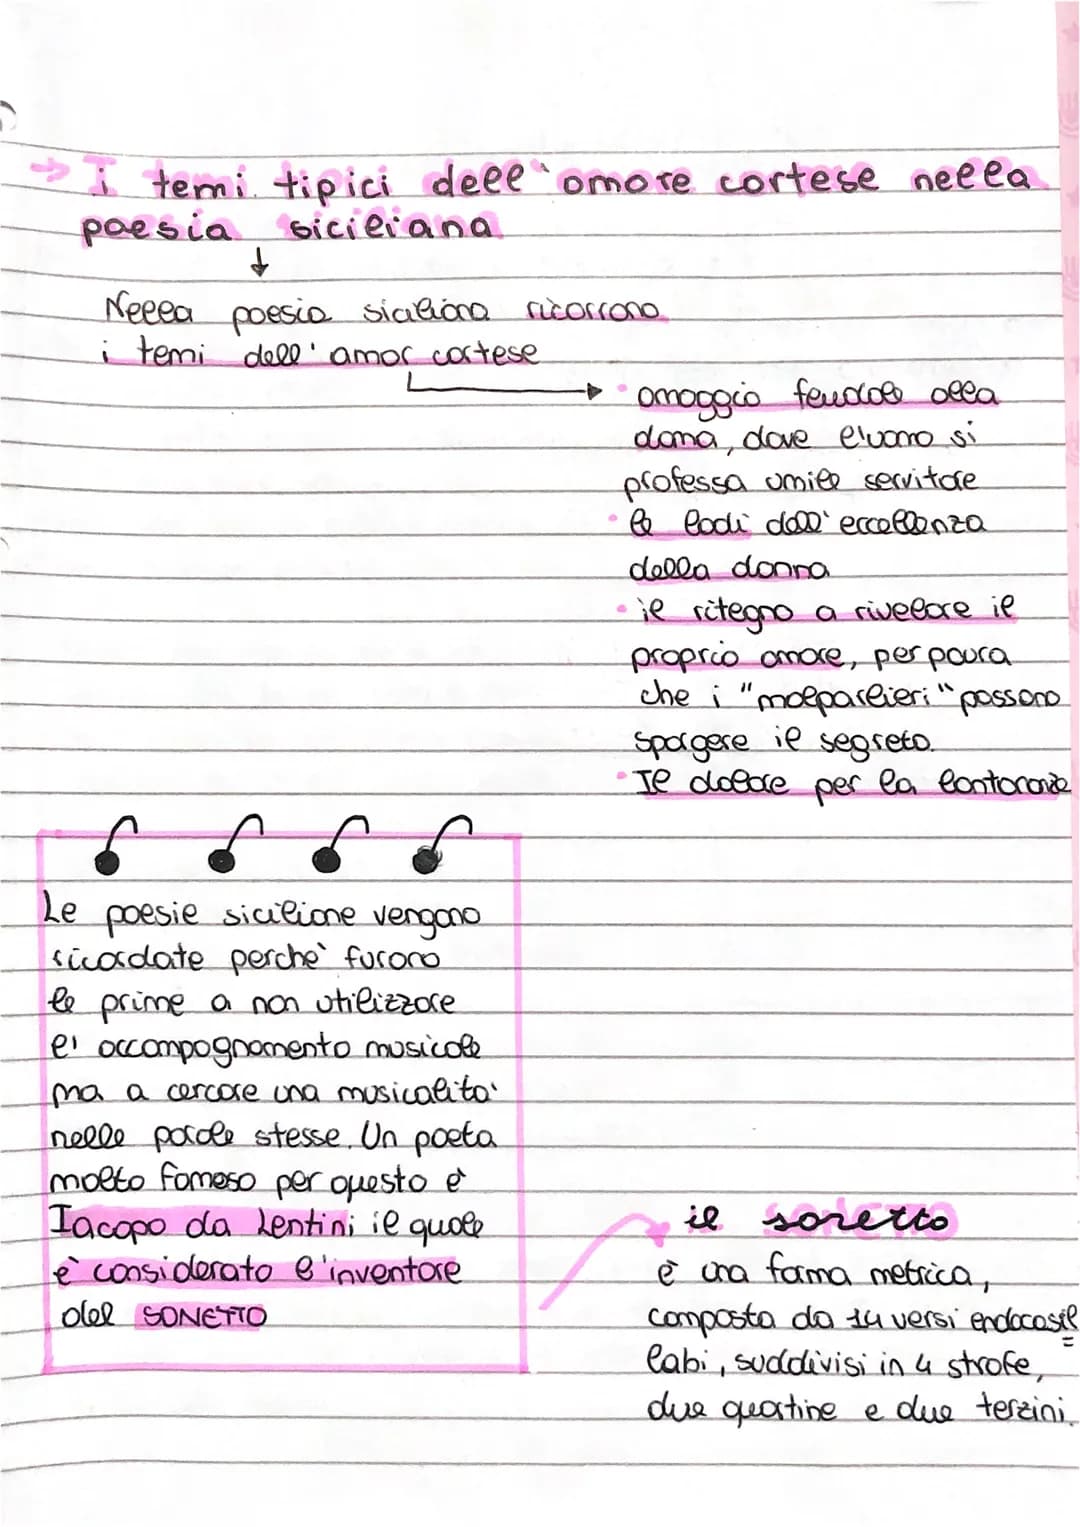 → I temi tipici dell'amore cortese nella
poesia siciliana
↓
Nella poesia siciliana ricorrono
i temi dell'amor cortese
• omaggio feudale alla
dona, dove l'uomo si
professa umile servitore
• le lodi dell'eccellenza
della donna
• il ritegno a rivelare il
proprio amore, per paura
che i "malparlieri" possano
spargere il segreto.
• Il dolore per la lontananza
Le poesie siciliane vengono
ricordate perchè furono
le prime a non utilizzare
l'accompagnamento musicale
ma a cercare una musicalità
nelle parole stesse. Un poeta
molto famoso per questo è
Iacopo da Lentini il quale
è considerato l'inventore
del SONETTO
il sonetto
è una forma metrica,
composta da 14 versi endecasil=
labi, suddivisi in 4 strofe,
due quartine e due terzini.